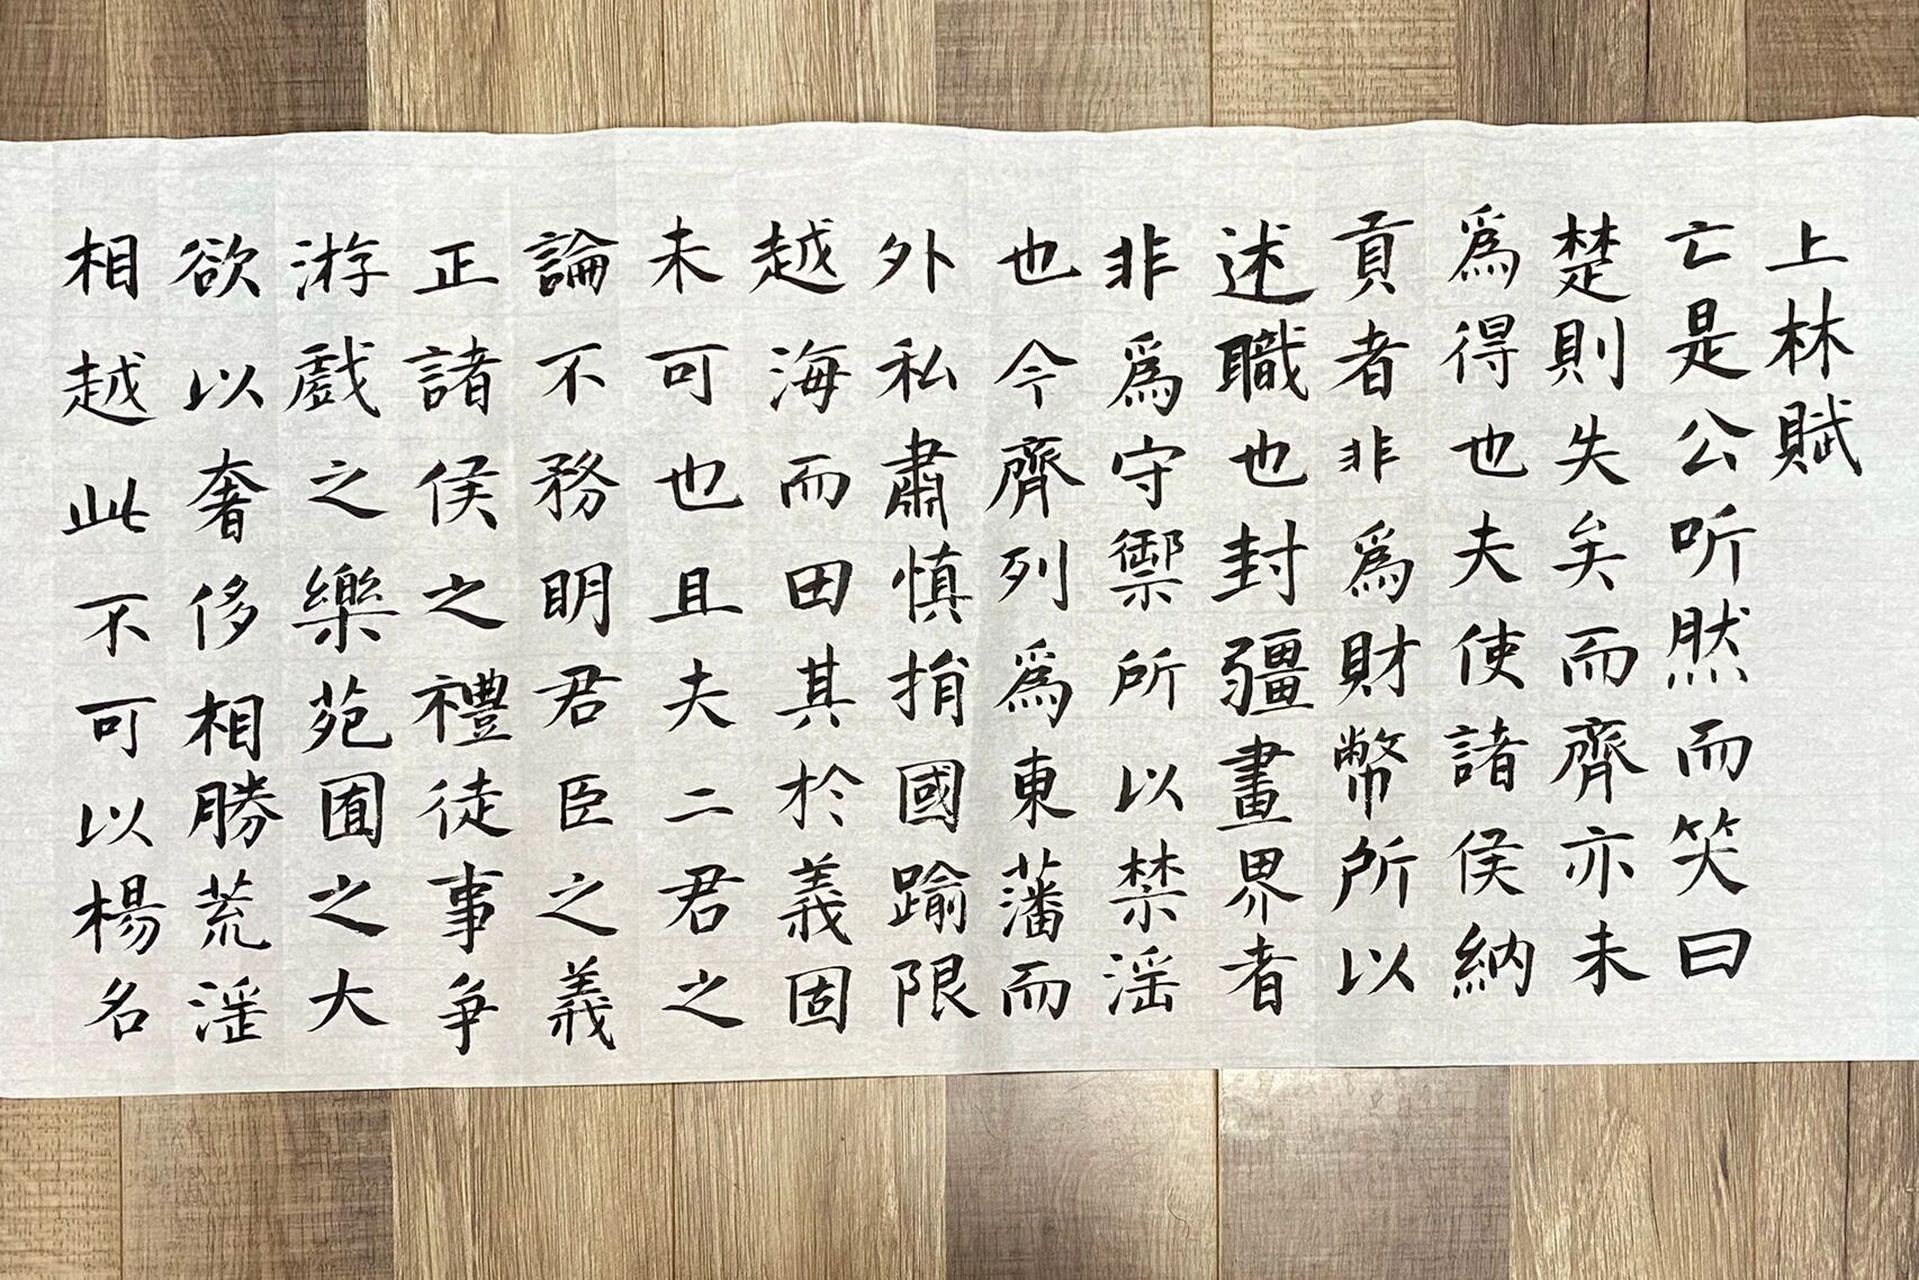 上林賦
亡是公听然而笑曰
楚則失矣而齊亦未
為得也夫使諸侯納
貢者非為財幣所以
述職也封疆畫界者
非為守禦所以禁淫
也今齊列為東藩而
外私肅慎捐國踰限
越海而田其於義固
未可也且夫二君之
論不務明君臣之義
正諸侯之禮徒事爭
游戲之樂苑囿之大
欲以奢侈相勝荒淫
相越此不可以楊名